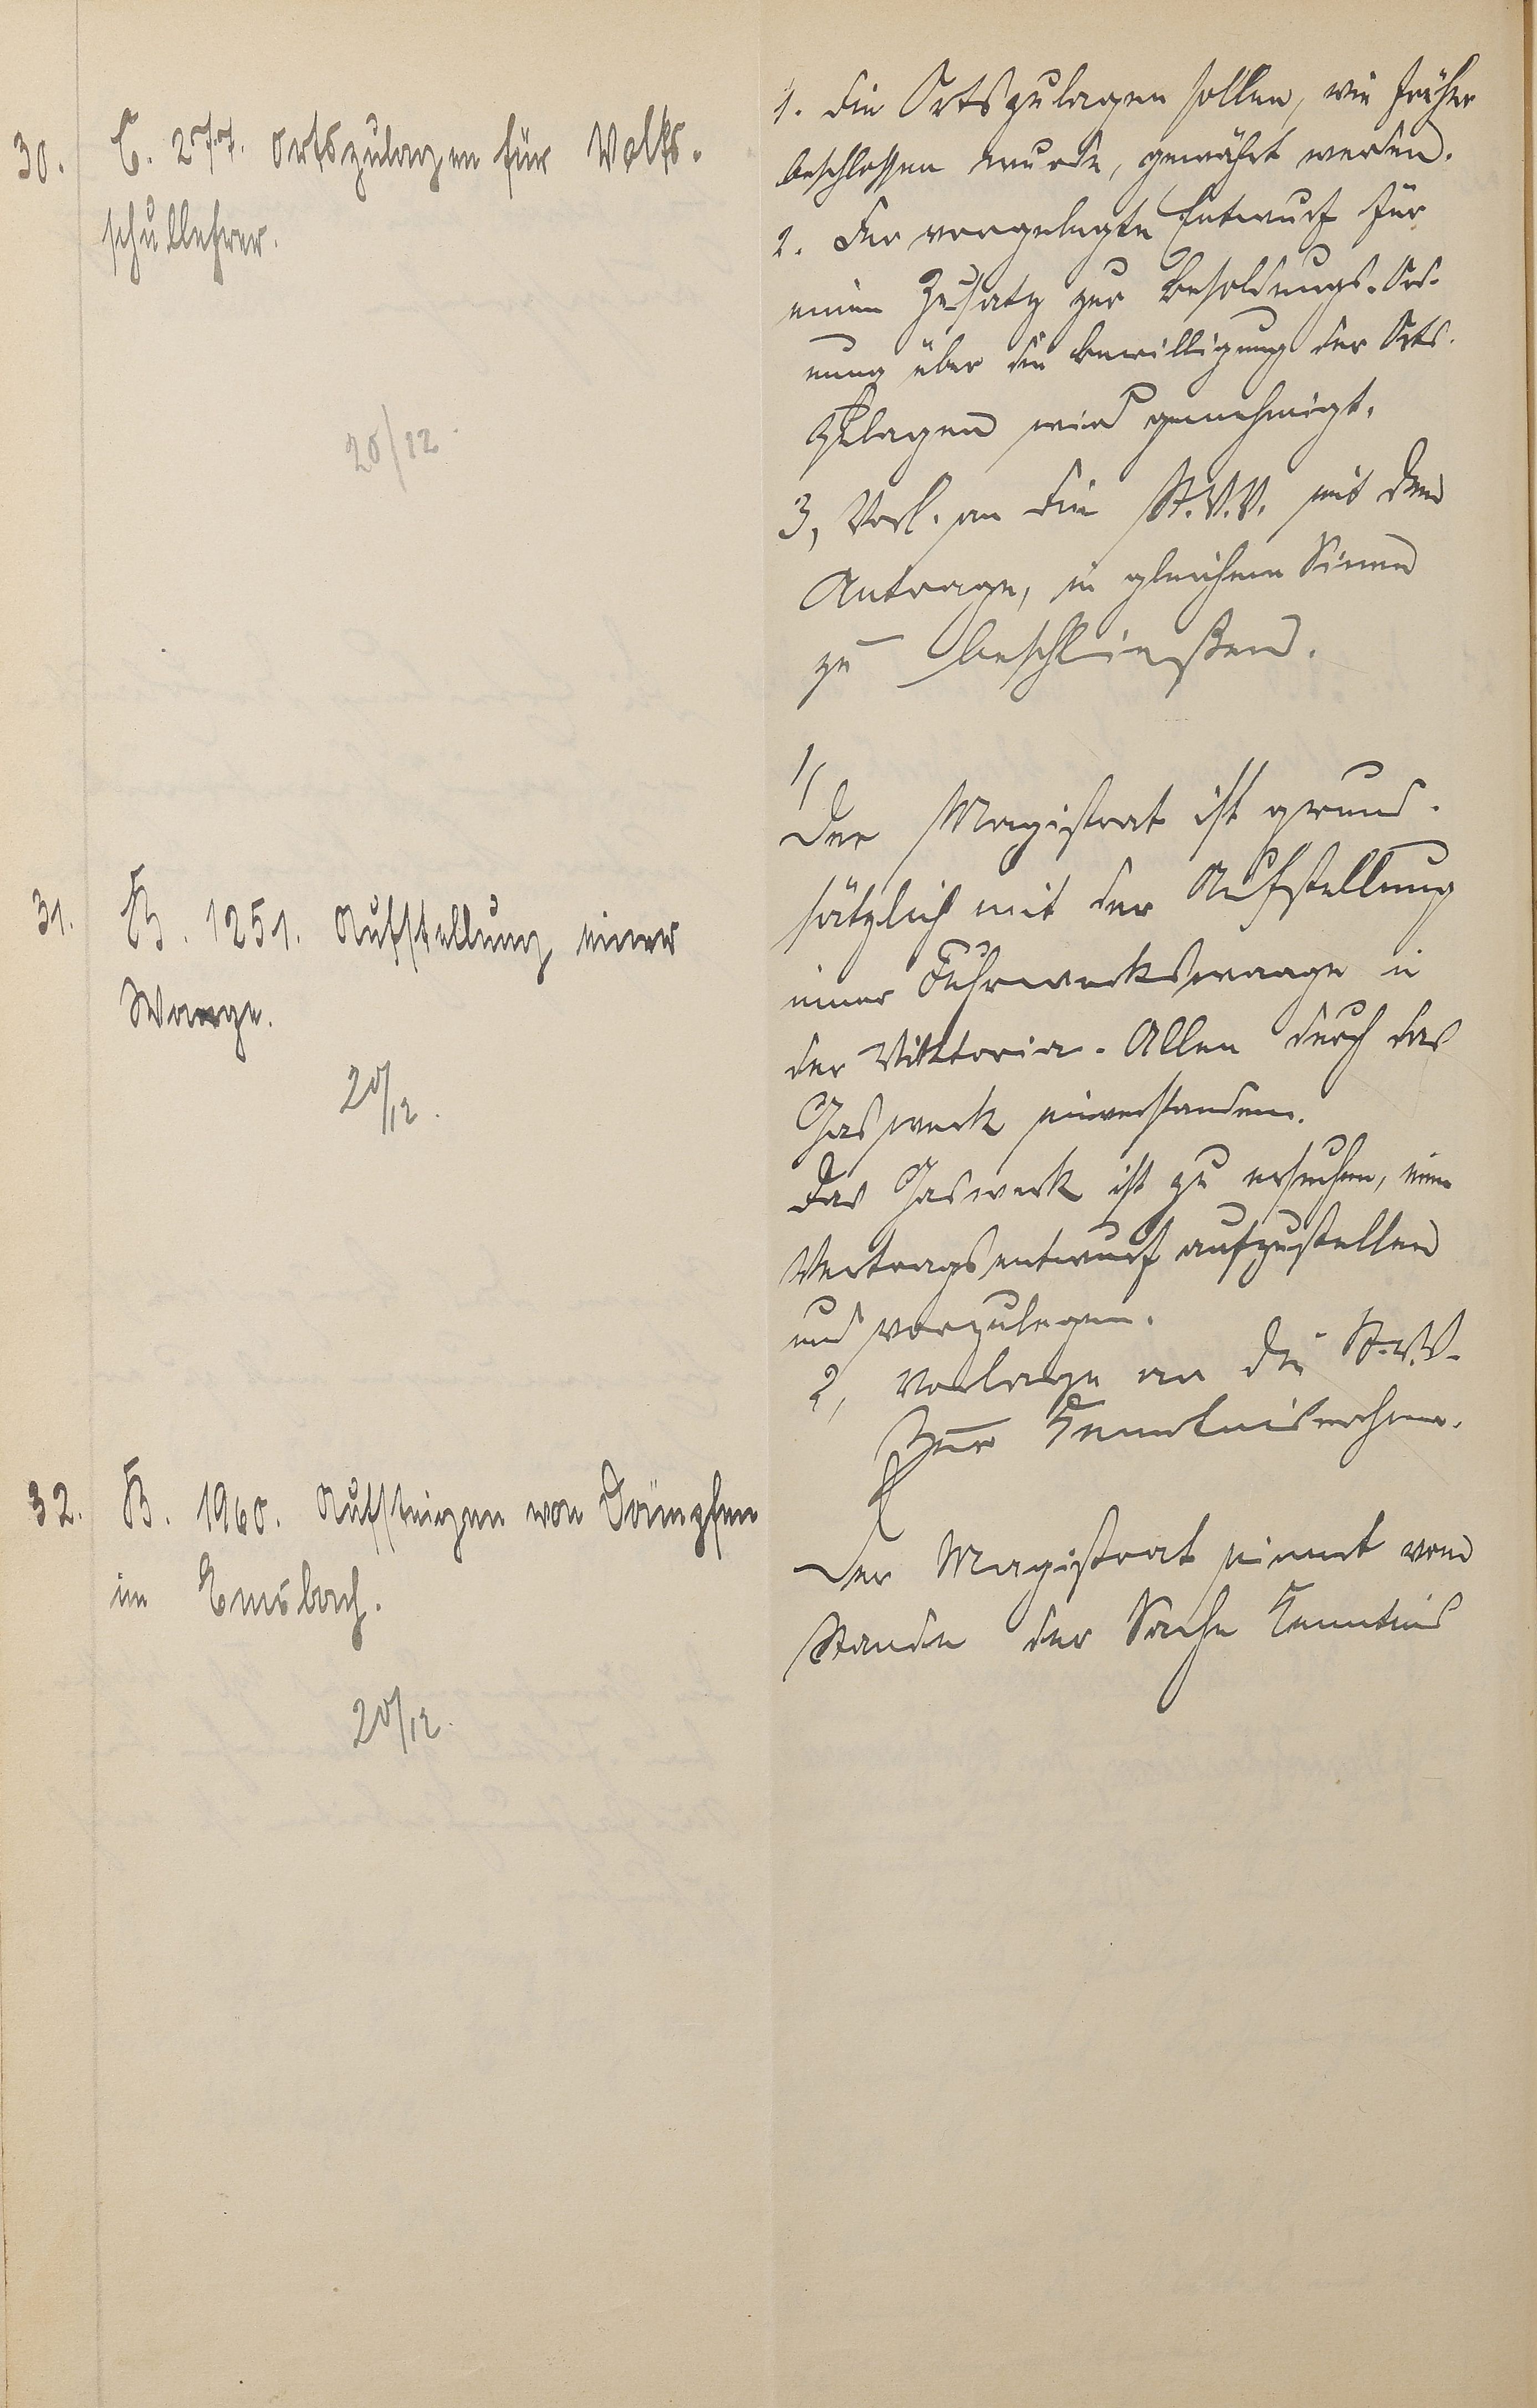 30. C. 277. Ortszulagen für Volks-
schullehrer.
20/12.
1. Die Ortszulagen sollen, wie früher
beschlossen wurde, gewährt werden.
2. Der vorgelegte Entwurf für
einen Zusatz zur Besoldungs-Ord-
nung über die Bewilligung der Orts-
zulagen wird genehmigt.
3, Vorl. an die St.V.V. mit dem
Antrage, in gleichem Sinne
zu beschließen.
31. B. 1251. Aufstellung einer
Waage.
20/12.
1/
Der Magistrat ist grund-
sätzlich mit der Aufstellung
einer Fuhrwerkswaage in
der Viktoria-Allee durch das
Gaswerk einverstanden.
Das Gaswerk ist zu ersuchen, einen
Vertragsentwurf aufzustellen
und vorzulegen.
2, Vorlage an die St.V.V.
zur Kenntnisnahme.
32. B. 1960. Aufsteigen von Dämpfen
im Emsbach.
20/12.
Der Magistrat nimmt vom
Stande der Sache Kenntnis